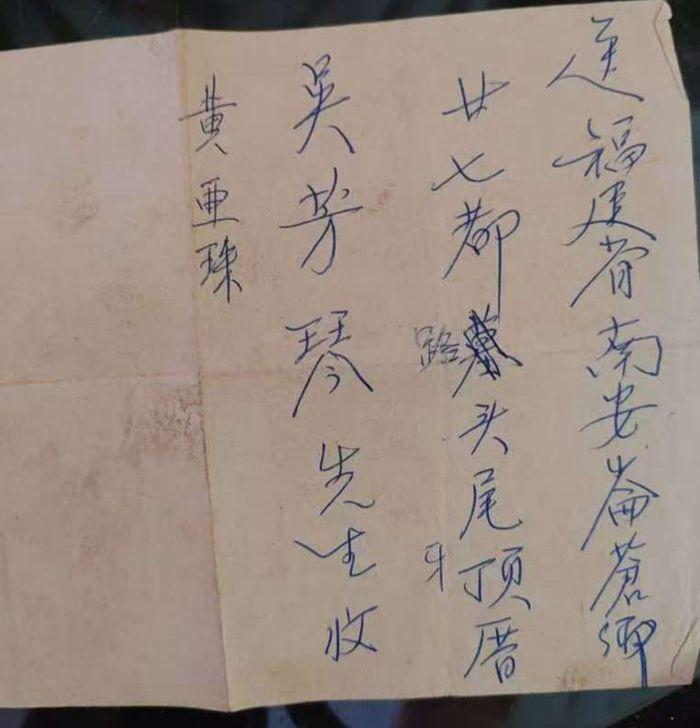 福建省南安崙蒼鄉
廿七都路头尾顶厝
吳芳琴先生收
黃亜珠